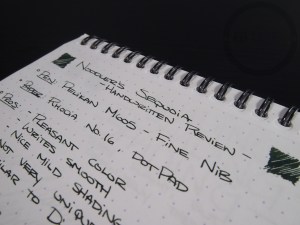 Noodler's Sequoia
- Handwritten Review -
• Pen: Pelikan M005 - Fine Nib
• Paper: Rhodia No. 16, DotPad
• Pros:
- Pleasant Color
- Writes Smooth
Nice Mild Shading
Not Very Unique